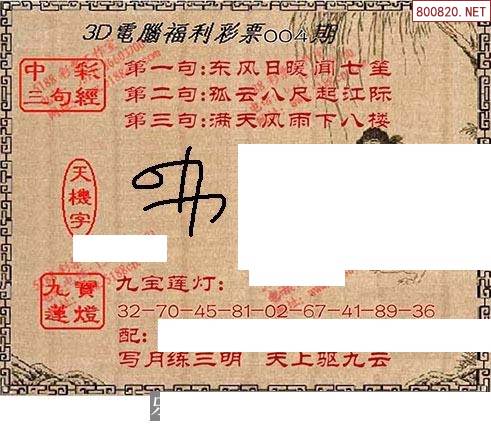 800820.NET
3D電腦福利彩票004期
中彩三句經
第一句:东风日暖闻七笙
第二句:孤云八尺起江际
第三句:满天风雨下八楼
天機字
九寶蓮燈
九宝莲灯:
32-70-45-81-02-67-41-89-36
配:
写月练三明 天上驱九云